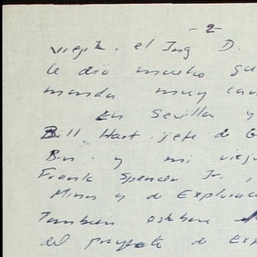 -2-
viejo. el Ing D.
le dio mucho gu
manda muy car
En Sevilla y
Bill Hart. jefe de G
Bn. y mi viejo
Frank Spencer Jr.,
Minas y de Exploraci
Tambien estaban
del proyecto de Exp